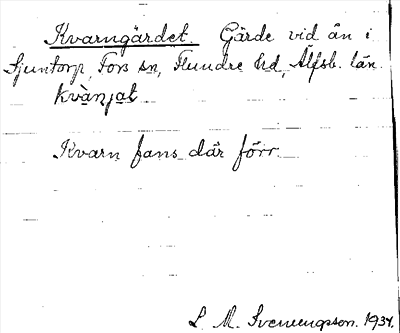 Kvarngärdet. Gärde vid ån i
Sjuntorp, Fors sn, Flundre hd, Älfsb. län.
Kvànjat
Kvarn fans där förr.
L. M. Svenungsson. 1934.